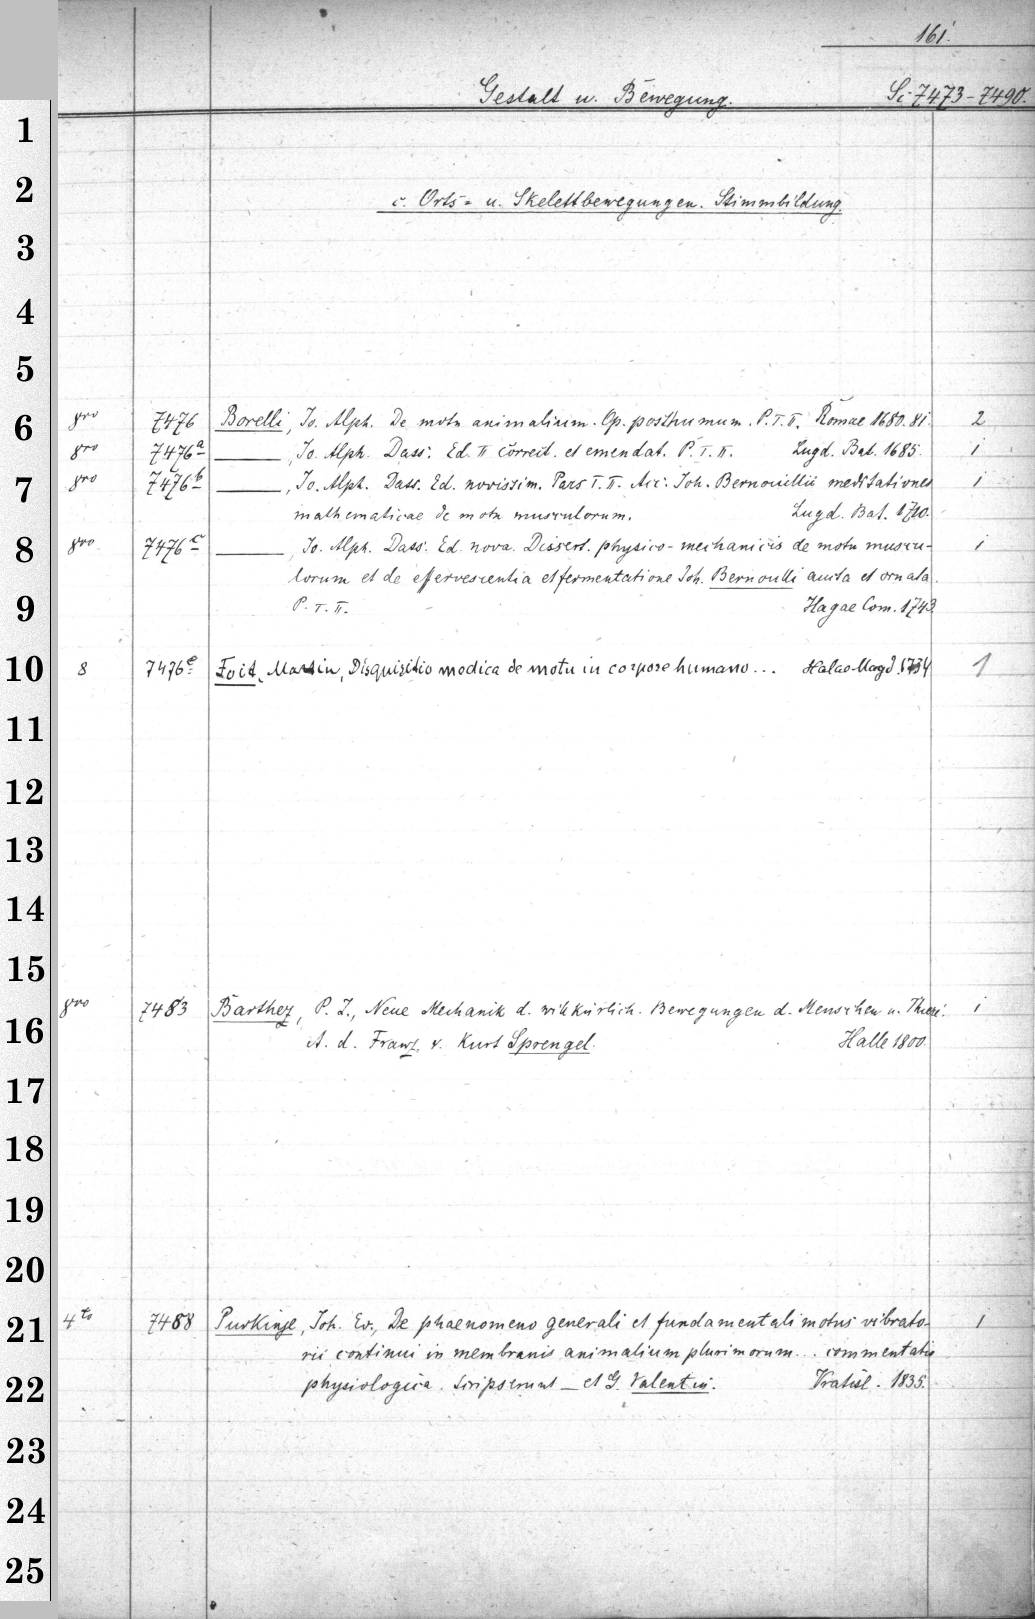 161.
Gestalt u. Bewegung. Sc 7473-7490.
1
2 c. Orts- u. Skelettbewegungen. Stimmbildung.
3
4
5
6 8vo 7476 Borelli, Jo. Alph. De motu animalium. Op. posthumum. P. I. II. Romae 1680.81. 2
8vo 7476a ———, Jo. Alph. Dass. Ed. II correct. et emendat. P. I. II. Lugd. Bat. 1685. 1
7 8vo 7476b ———, Jo. Alph. Dass. Ed. novissim. Pars I. II. Acc. Joh. Bernouillii meditationes 1
mathematicae de motu musculorum. Lugd. Bat. 1710.
8 8vo 7476c ———, Jo. Alph. Dass. Ed. nova. Dissert. physico-mechanicis de motu muscu- 1
lorum et de effervescentia et fermentatione Joh. Bernoulli aucta et ornata.
9 P. I. II. Hagae Com. 1743
10 8 7476e Foit, Martin, Disquisitio modica de motu in corpore humano... Halae Magd. 1734 1
11
12
13
14
15
8vo 7483 Barthez, P. J., Neue Mechanik d. willkürlich. Bewegungen d. Menschen u. Thiere. 1
16 A. d. Franz. v. Kurt Sprengel. Halle 1800.
17
18
19
20
21 4to 7488 Purkinje, Joh. Ev., De phaenomeno generali et fundamentali motus vibrato- 1
rii continui in membranis animalium plurimorum... commentatio
22 physiologica. Scripserunt — et G. Valentin. Vratisl. 1835.
23
24
25